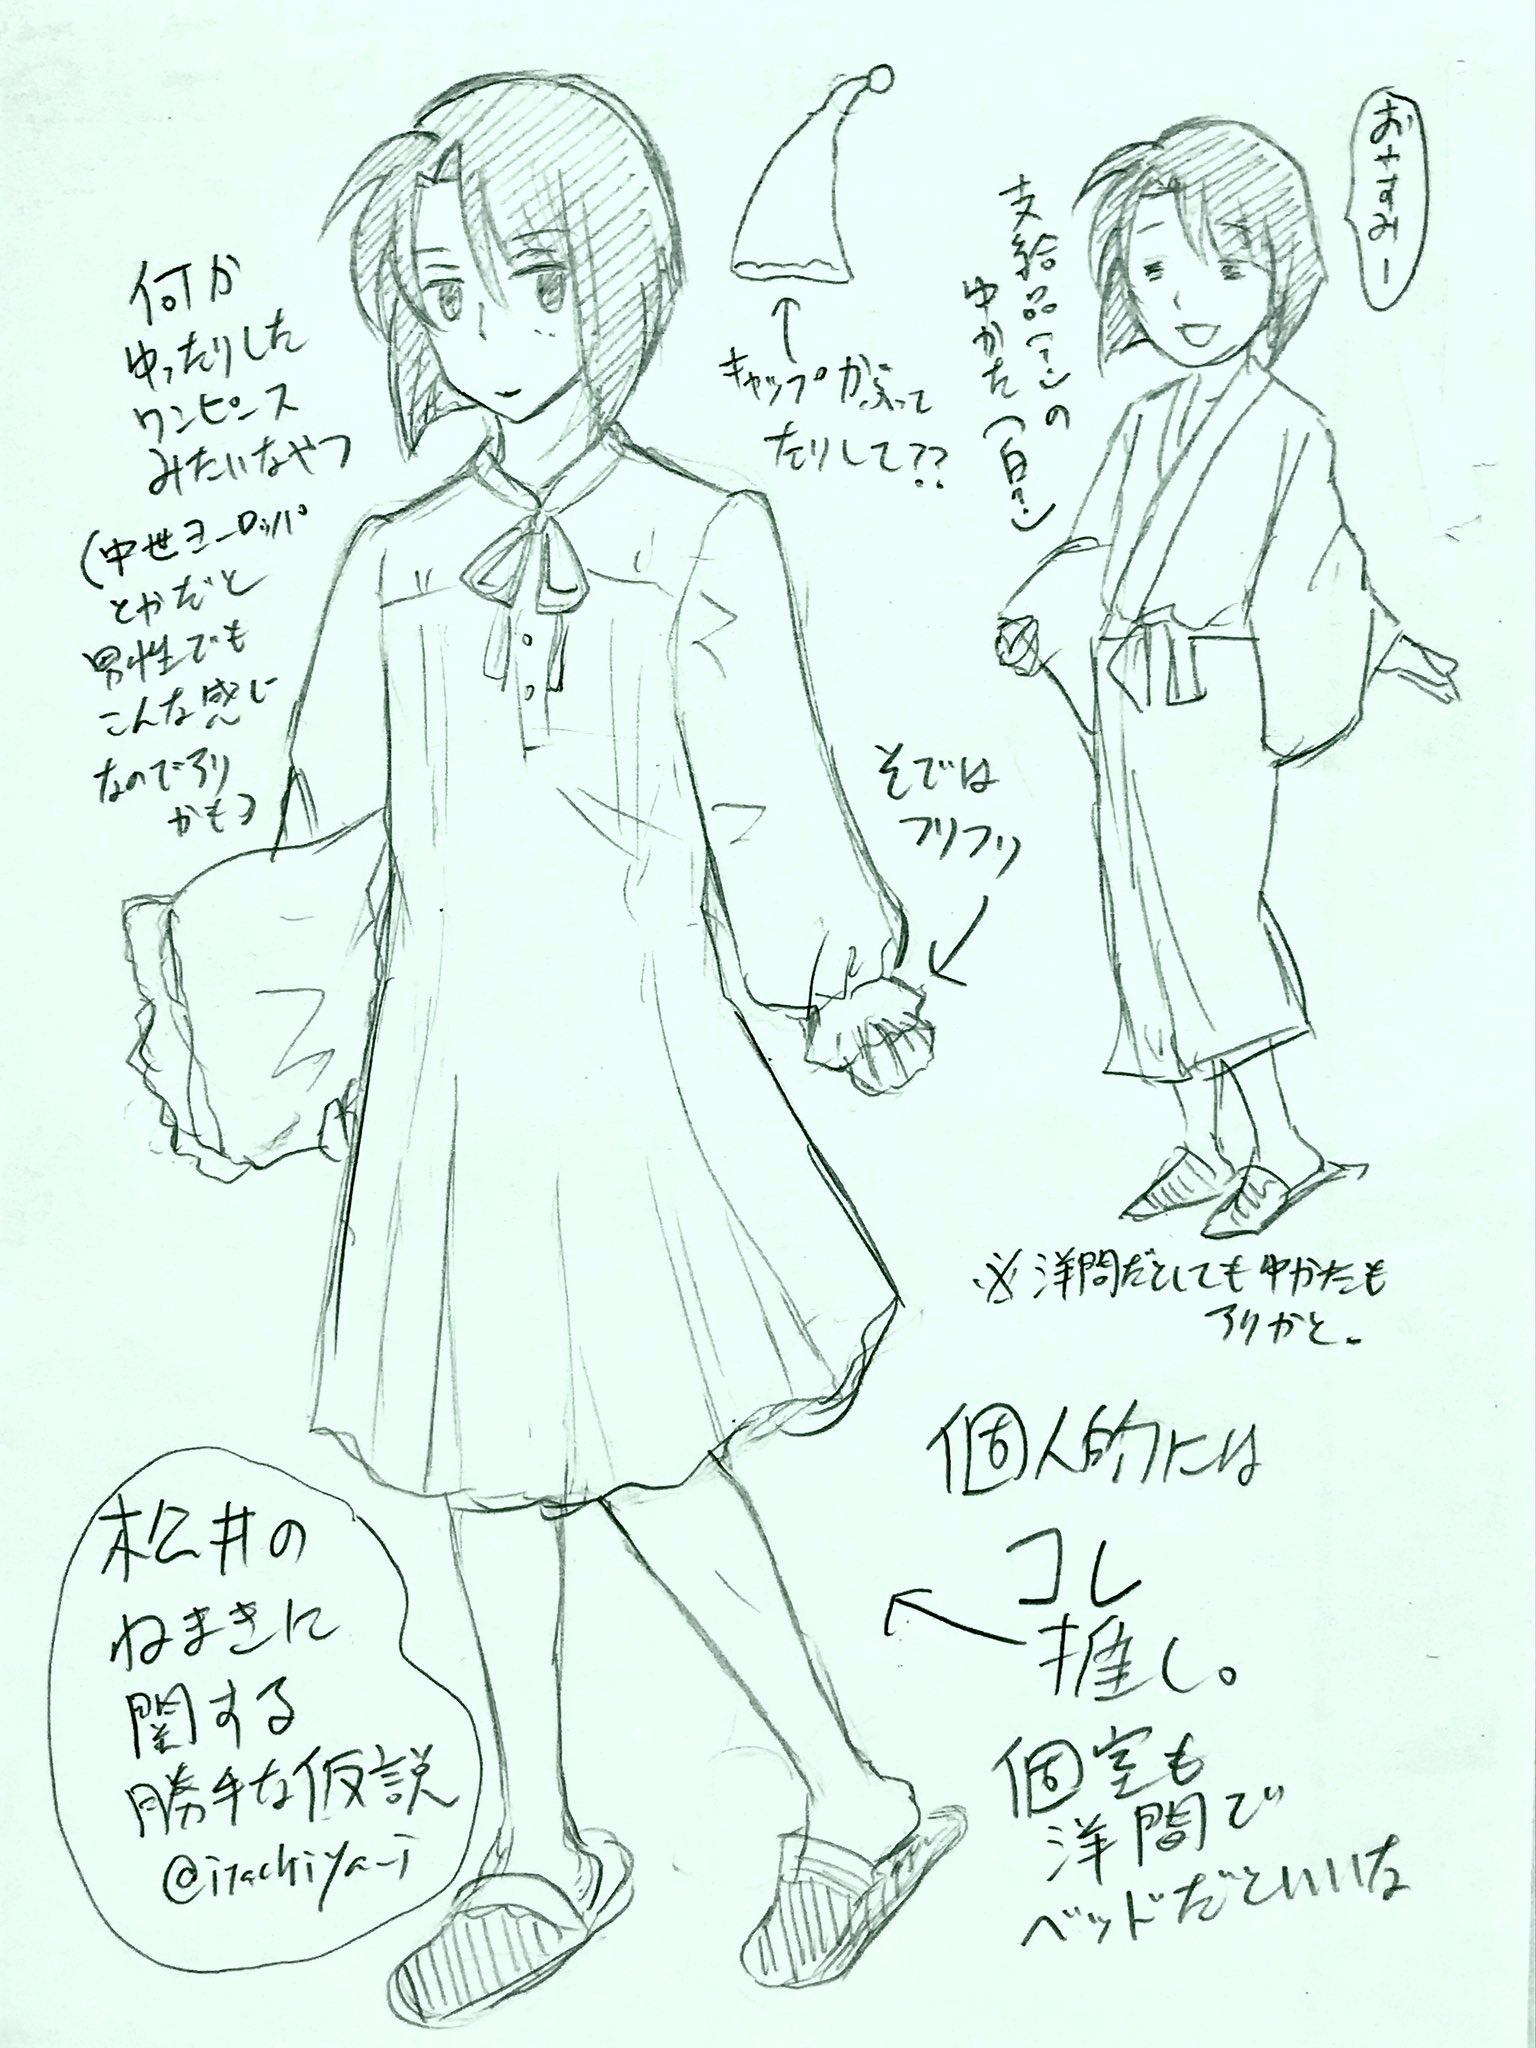 何か
ゆったりした
ワンピース
みたいなやつ
(中世ヨーロッパ
とかだと
男性でも
こんな感じ
なのでアリ
かも)
キャップかぶって
たりして??
おやすみー
支給品(?)の
ゆかた(白?)
そでは
フリフリ
※洋間だとしてもゆかたも
アリかと。
個人的には
コレ
推し。
個室も
洋間で
ベッドだといいな
松井の
ねまきに
関する
勝手な仮説